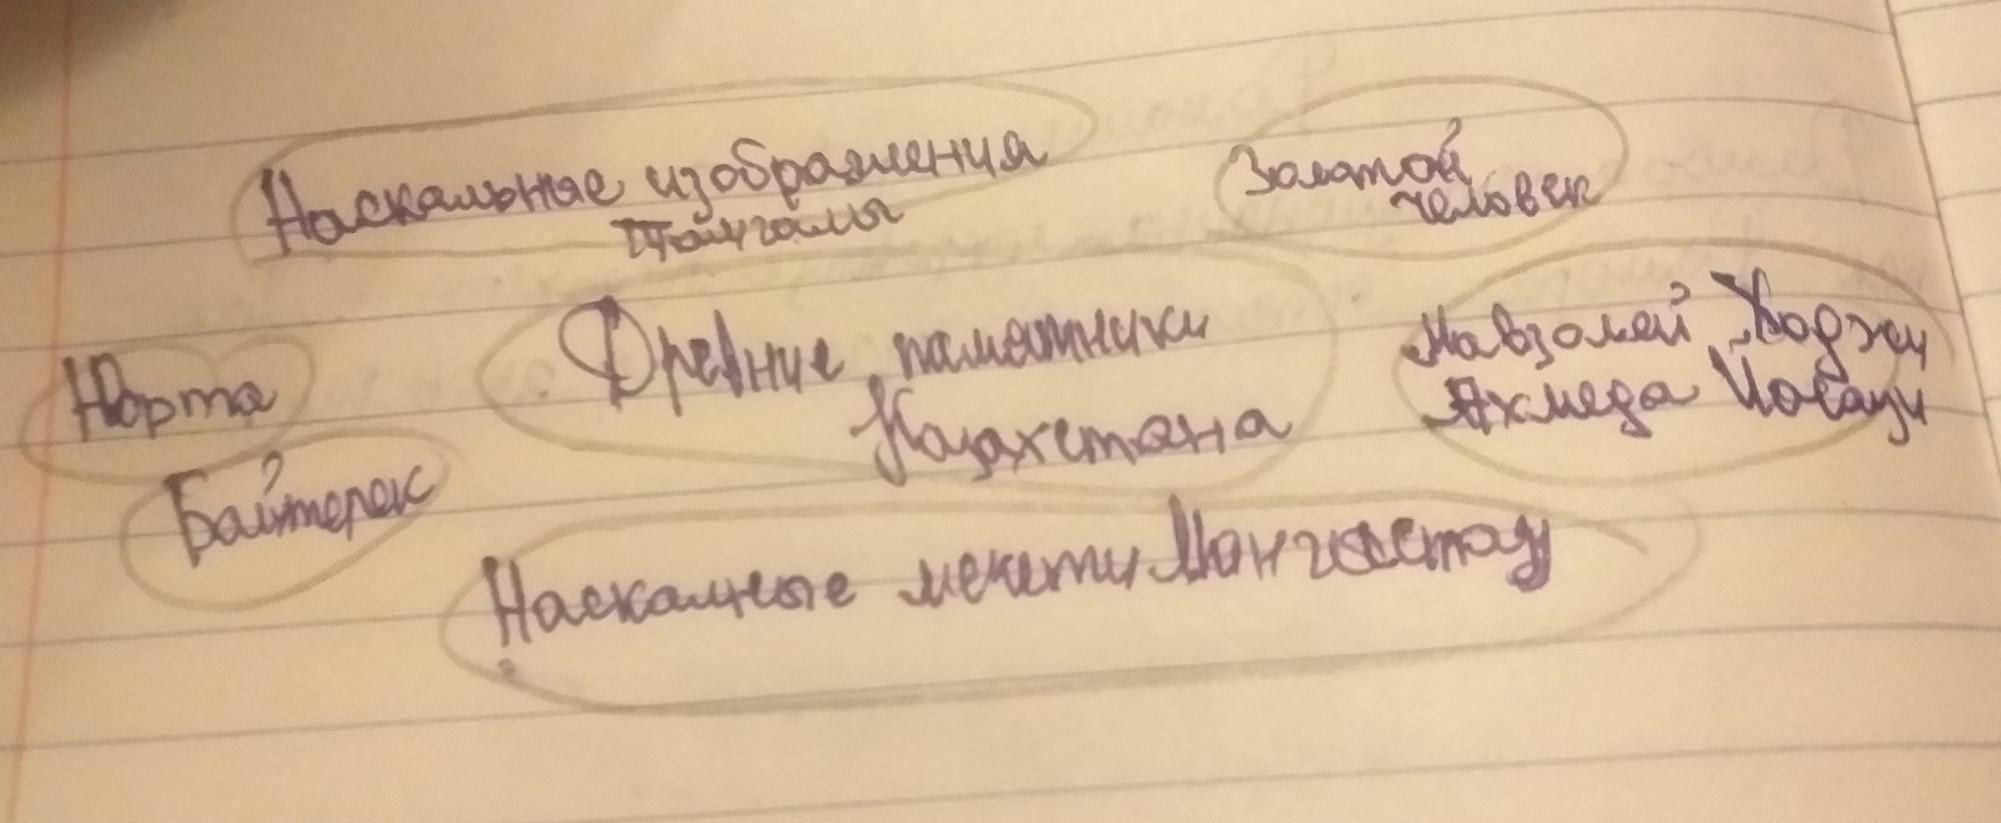 Наскальные изображения
Тамгалы
Золотой
человек
Древние памятники
Казахстана
Мавзолей Ходжи
Ахмеда Йосауи
Юрта
Байтерек
Наскальные мечети Мангыстау